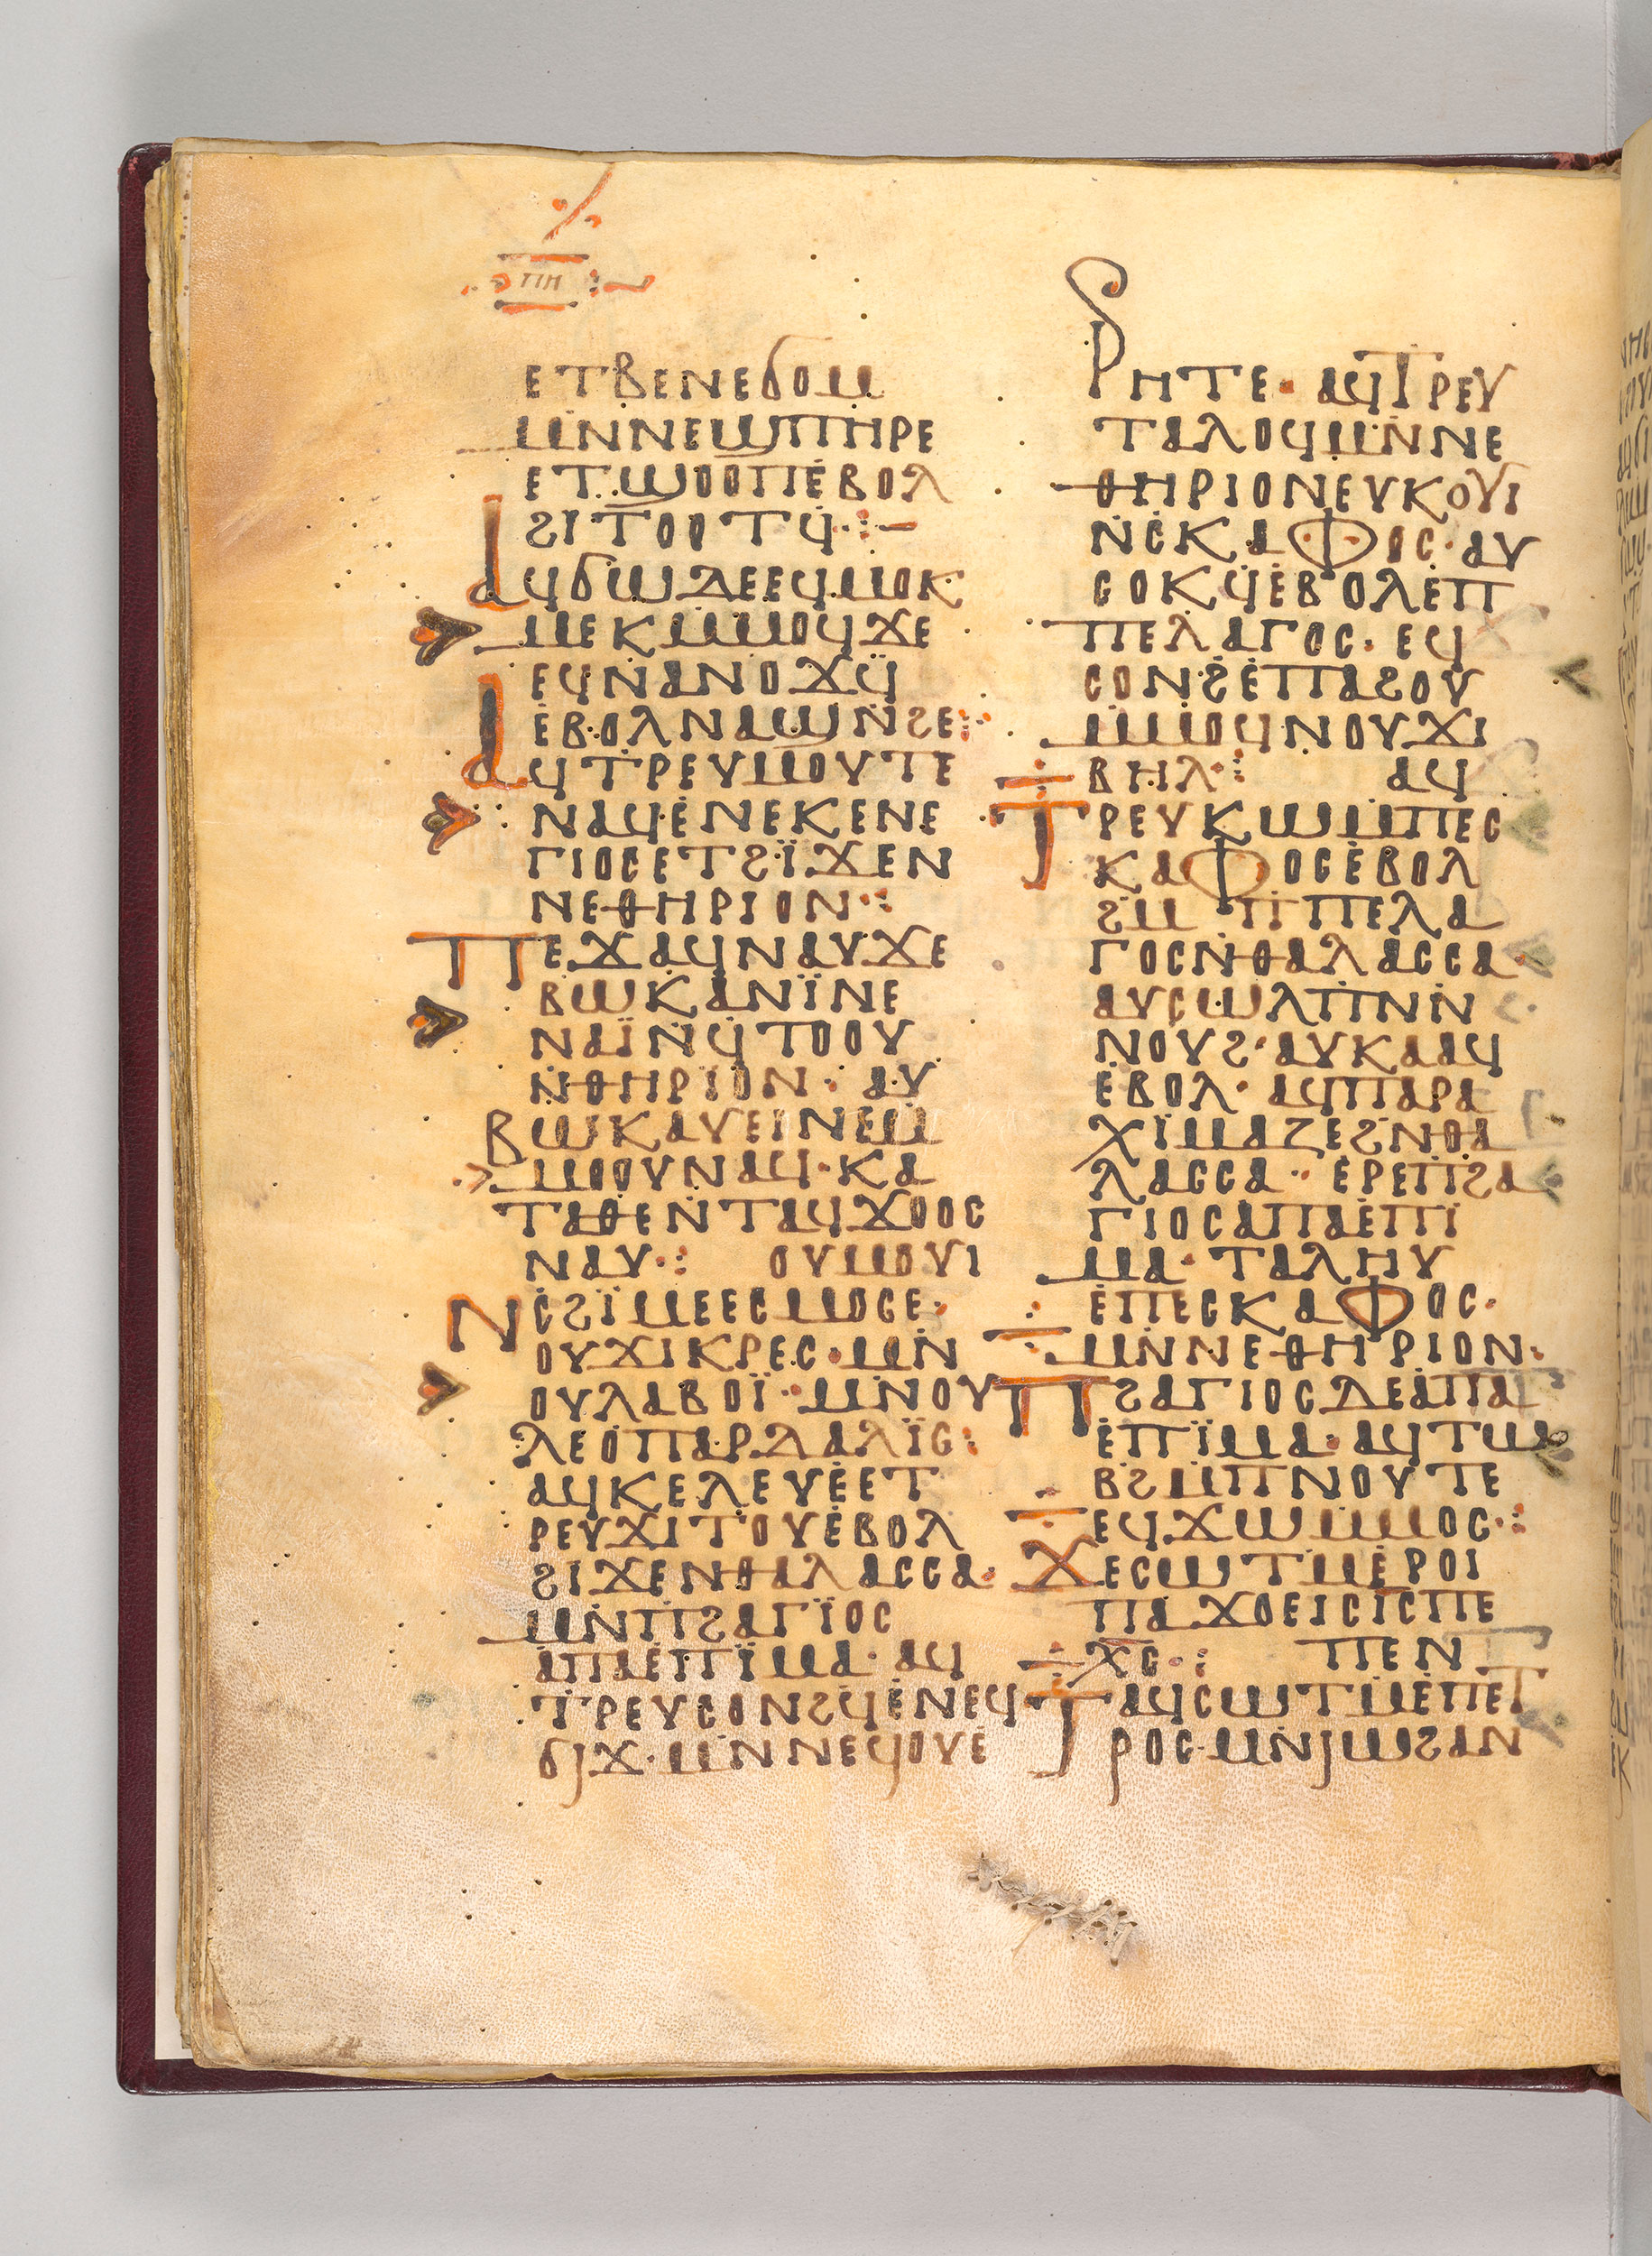 ⲡⲏ
ⲉⲧⲃⲉⲛⲉϭⲟⲙ
ⲙⲛⲛⲉϣⲡⲏⲣⲉ
ⲉⲧϣⲟⲟⲡⲉⲃⲟⲗ
ϩⲓⲧⲟⲟⲧϥ·:–
ⲁϥϭⲱⲇⲉⲉϥⲙⲟⲕ
ⲙⲉⲕⲙⲙⲟϥϫⲉ
ⲉϥⲛⲁⲛⲟϫϥ
ⲉⲃⲟⲗⲛⲁϣⲛϩⲉ:
ⲁϥⲧⲣⲉⲩⲙⲟⲩⲧⲉ
ⲛⲁϥⲉⲛⲉⲕⲉⲛⲉ
ⲅⲓⲟⲥⲉⲧϩⲓ̈ϫⲉⲛ
ⲛⲉⲑⲏⲣⲓⲟⲛ·:
ⲡⲉϫⲁϥⲛⲁⲩϫⲉ
ⲃⲱⲕⲁⲛⲓ̈ⲛⲉ
ⲛⲁⲓ̈ⲛϥⲧⲟⲟⲩ
ⲛⲑⲏⲣⲓⲟⲛ· ⲁⲩ
ⲃⲱⲕⲁⲩⲉⲓⲛⲉⲙ
ⲙⲟⲟⲩⲛⲁϥ·ⲕⲁ
ⲧⲁⲑⲉⲛⲧⲁϥϫⲟⲟⲥ
ⲛⲁⲩ·: ⲟⲩⲙⲟⲩⲓ
ⲛⲥϩⲓ̈ⲙⲉⲉⲥⲙⲟⲥⲉ·
ⲟⲩϫⲓⲕⲣⲉⲥ·ⲙⲛ
ⲟⲩⲗⲁⲃⲟⲓ̈·ⲙⲛⲟⲩ
ⲗⲉⲟⲡⲁⲣⲇⲁⲗⲓ̈ⲥ:
ⲁϥⲕⲉⲗⲉⲩⲉⲉⲧ
ⲣⲉⲩϫⲓⲧⲟⲩⲉⲃⲟⲗ
ϩⲓϫⲉⲛⲑⲁⲗⲁⲥⲥⲁ·
ⲙⲛⲡϩⲁⲅⲓ̈ⲟⲥ
ⲁⲡⲁⲉⲡⲓ̈ⲙⲁ· ⲁϥ
ⲧⲣⲉⲩⲥⲟⲛϩϥⲉⲛⲉϥ
ϭⲓϫ·ⲙⲛⲛⲉϥⲟⲩⲉ
ⲣⲏⲧⲉ· ⲁϥⲧⲣⲉⲩ
ⲧⲁⲗⲟϥⲙⲛⲛⲉ
ⲑⲏⲣⲓⲟⲛⲉⲩⲕⲟⲩⲓ
ⲛⲥⲕⲁⲫⲟⲥ·ⲁⲩ
ⲥⲟⲕϥⲉⲃⲟⲗⲉⲡ
ⲡⲉⲗⲁⲅⲟⲥ· ⲉϥ
ⲥⲟⲛϩⲉⲡⲁϩⲟⲩ
ⲙⲙⲟϥⲛⲟⲩϫⲓ
ⲃⲏⲗ·: ⲁϥ
ⲧⲣⲉⲩⲕⲱⲙⲡⲉⲥ
ⲕⲁⲫⲟⲥⲉⲃⲟⲗ
ϩⲙ ⲡⲓⲡⲉⲗⲁ
ⲅⲟⲥⲛⲑⲁⲗⲁⲥⲥⲁ·
ⲁⲩⲥⲱⲗⲡⲛⲛ
ⲛⲟⲩϩ·ⲁⲩⲕⲁⲁϥ
ⲉⲃⲟⲗ· ⲁϥⲡⲁⲣⲁ
ⲭⲓ̈ⲙⲁⲍⲉϩⲛⲑⲁ
ⲗⲁⲥⲥⲁ·· ⲉⲣⲉⲡϩⲁ
ⲅⲓⲟⲥⲁⲡⲁⲉⲡⲓ
ⲙⲁ· ⲧⲁⲗⲏⲩ
ⲉⲡⲉⲥⲕⲁⲫⲟⲥ·
ⲙⲛⲛⲉⲑⲏⲣⲓⲟⲛ·
ⲡϩⲁⲅⲓⲟⲥⲇⲉⲁⲡⲁ
ⲉⲡⲓ̈ⲙⲁ·ⲁϥⲧⲱ
ⲃϩⲙⲡⲛⲟⲩⲧⲉ
ⲉϥϫⲱⲙⲙⲟⲥ·:
ϫⲉⲥⲱⲧⲙⲉⲣⲟⲓ
ⲡⲁϫⲟⲉⲓⲥⲓ̅ⲥ̅ⲡⲉ
ⲭ̅ⲥ̅·: ⲡⲉⲛ
ⲧⲁϥⲥⲱⲧⲙⲉⲡⲉⲧ
ⲣⲟⲥ·ⲙⲛⲓⲱϩⲁⲛ